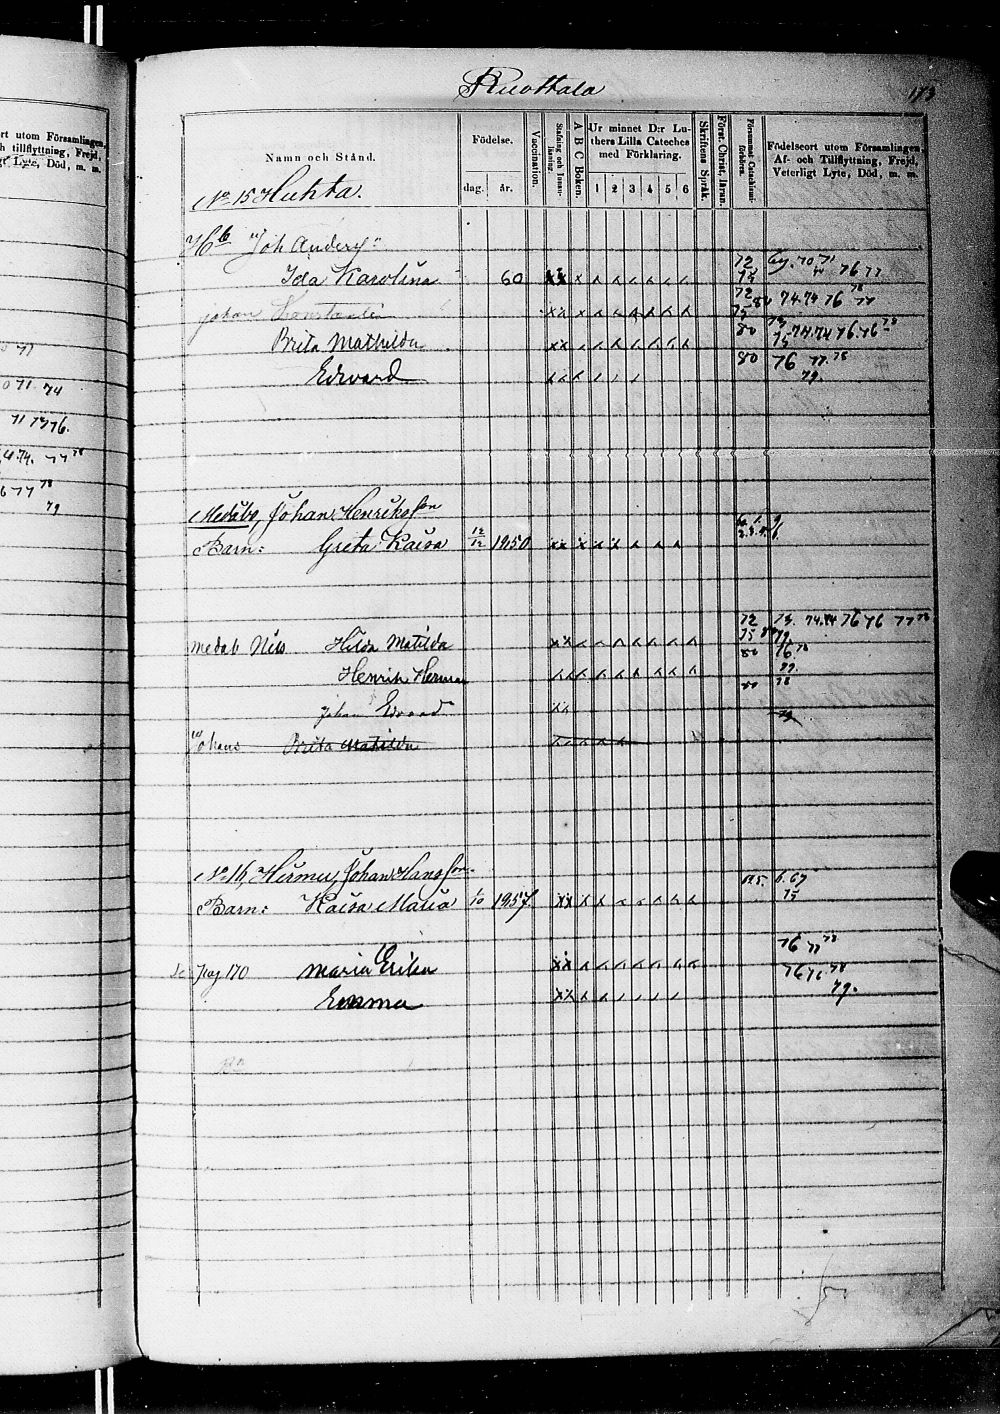 Ruottala
113
rt utom Församlingen,
h tillflyttning, Frejd,
gt Lyte, Död, m. m.
Namn och Stånd.
Födelse.
dag. år.
Vaccination.
Stafning och Innanläsning.
A B C Boken.
Ur minnet D:r Luthers Lilla Cateches med Förklaring.
1 2 3 4 5 6
Skriftens Språk.
Först. Christ. läran.
Födelseort utom Församlingen,
Af- och Tillflyttning, Frejd,
Veterligt Lyte, Död, m. m.
No 15 Huhta.
Hb Joh Anders
Ida Karolina 60
72 75 70 71 76 77
Johan Konstantin
72 75 80 74.74 76 78 77
Brita Mathilda
80 73 75 74.74 76.76 78
Edvard
80 76 77 78 79.
71
71 74
71 73 76.
74. 77 78
6 77 78
79
Medåbo, Johan Henriksson
Barn: Greta Kaisa 12/12 1850
medåb Nils Hilda Matilda
72 75 73. 74.74 76 76 77 78
Henrik Herman
80 76 78 79.
Johan Edvard
80 78 79
Johans Brita Matilda
No 16, Hermes, Johan Hansson
Barn: Kaisa Maria 1/10 1857
6.67 75
Se Pag 170 Maria Erika
76 77 78
Emma
76 76 78 79.